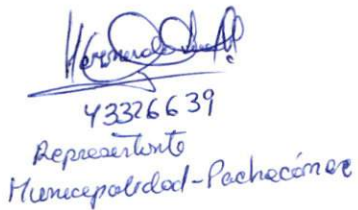 43326639
Representante
Municepalidad-Pachacámac